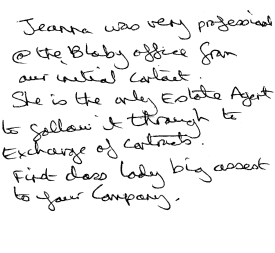 Jeanna was very professional
@ the Blaby office from
our initial contact.
She is the only Estate Agent
to follow it through to
Exchange of contracts.
First class lady big assest
to your Company.